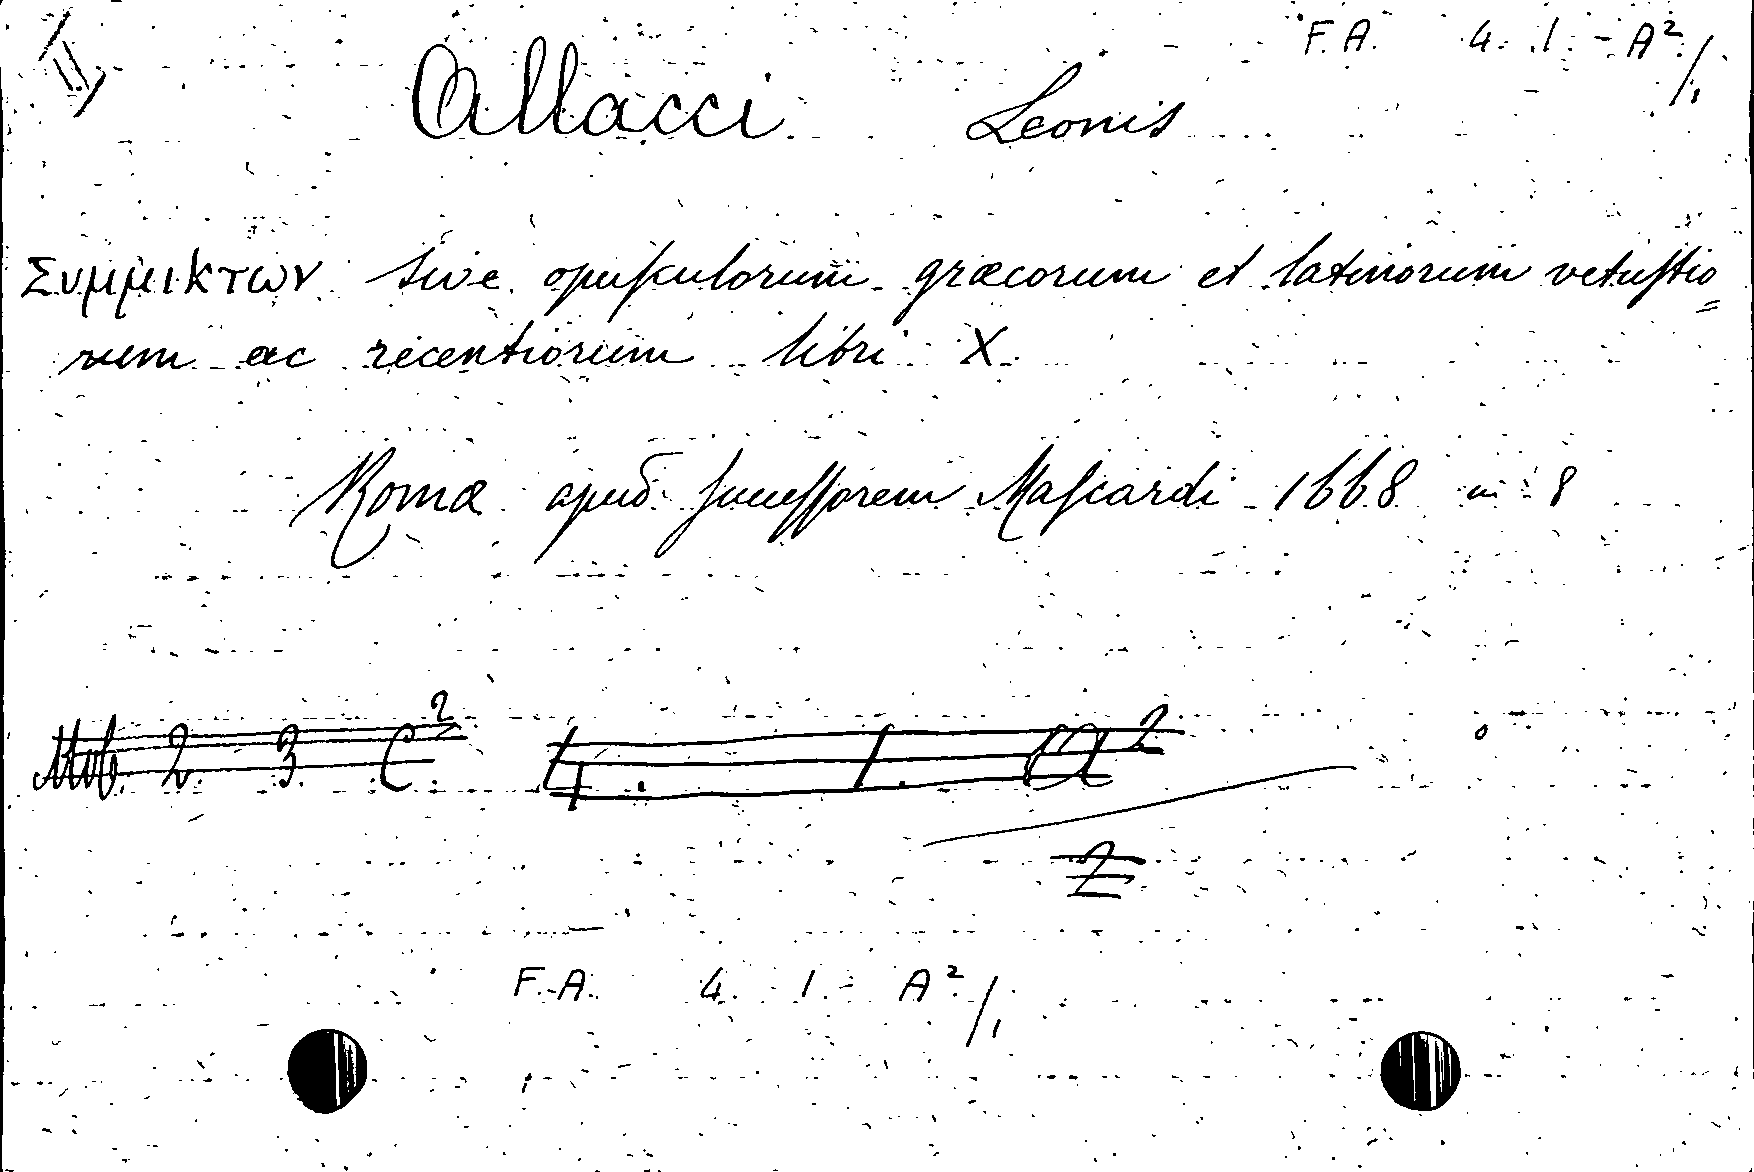 F. A. 4. 1. A²/1
Allacci Leonis
Συμμικτων sive opuſculorum græcorum et latinorum vetuſtio=
rum ac recentiorum libri X.
Romæ apud ſucceſſorem Maſcardi 1668 in 8
Mob. 2. 3. C² 4. 1. A²
2
F. A. 4. 1. A²/1